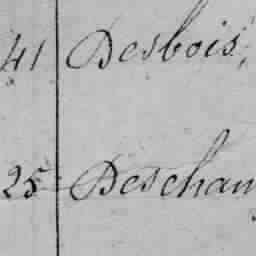 41 Desbois,
25 Descham